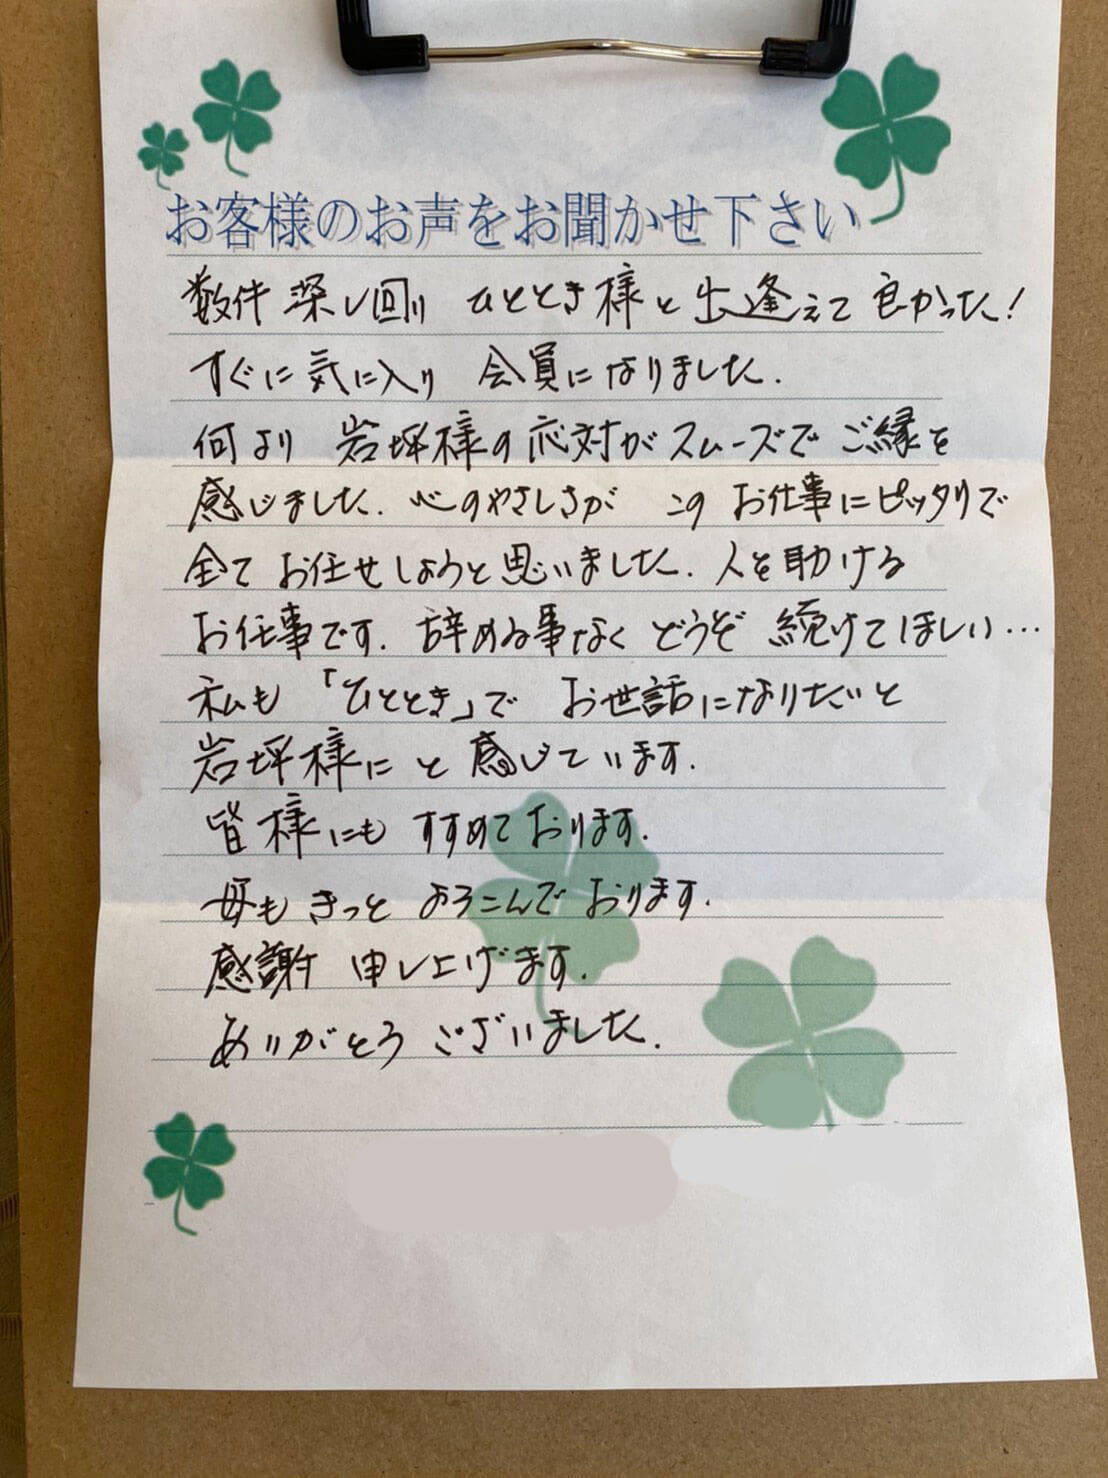 お客様のお声をお聞かせ下さい
数件 深し回り ひととき様と出逢えて良かった!
すぐに気に入り 会員になりました.
何より 岩坪様の応対がスムーズで ご縁を
感じました. 心のやさしさが このお仕事にピッタリで
全てお任せしようと思いました. 人を助ける
お仕事です. 辞める事なく どうぞ 続けてほしい…
私も 「ひととき」で お世話になりたいと
岩坪様にと感じています.
皆様にも すすめております.
母も きっと よろこんで おります.
感謝 申し上げます.
ありがとう ございました.